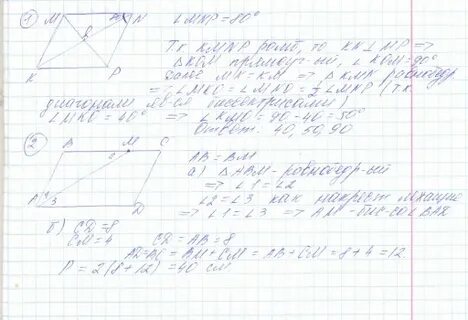 ① M N ∠MNP = 80°
K P
Тк KMNP ромб, то KN ⊥ MP ⇒
∠KOM = 90°
также MN = KM ⇒ △KMN равнобедр
⇒ ∠MKO = ∠MNO = ½ ∠MKP (т.к.
диагонали явл-ся биссектрисами)
∠MKO = 40° ⇒ ∠KMO = 90 - 40 = 50°
Ответ: 40, 50, 90
② B M C
AB = BM
а) △ABM - равнобедр-ый
⇒ ∠1 = ∠2
A 3 D
∠2 = ∠3 как накрест лежащие
⇒ ∠1 = ∠3 ⇒ AM - бис-са ∠BAD
б) CD = 8
CM = 4 CD = AB = 8
AD = BC = BM + CM = AB + CM = 8 + 4 = 12
P = 2(8+12) = 40 см